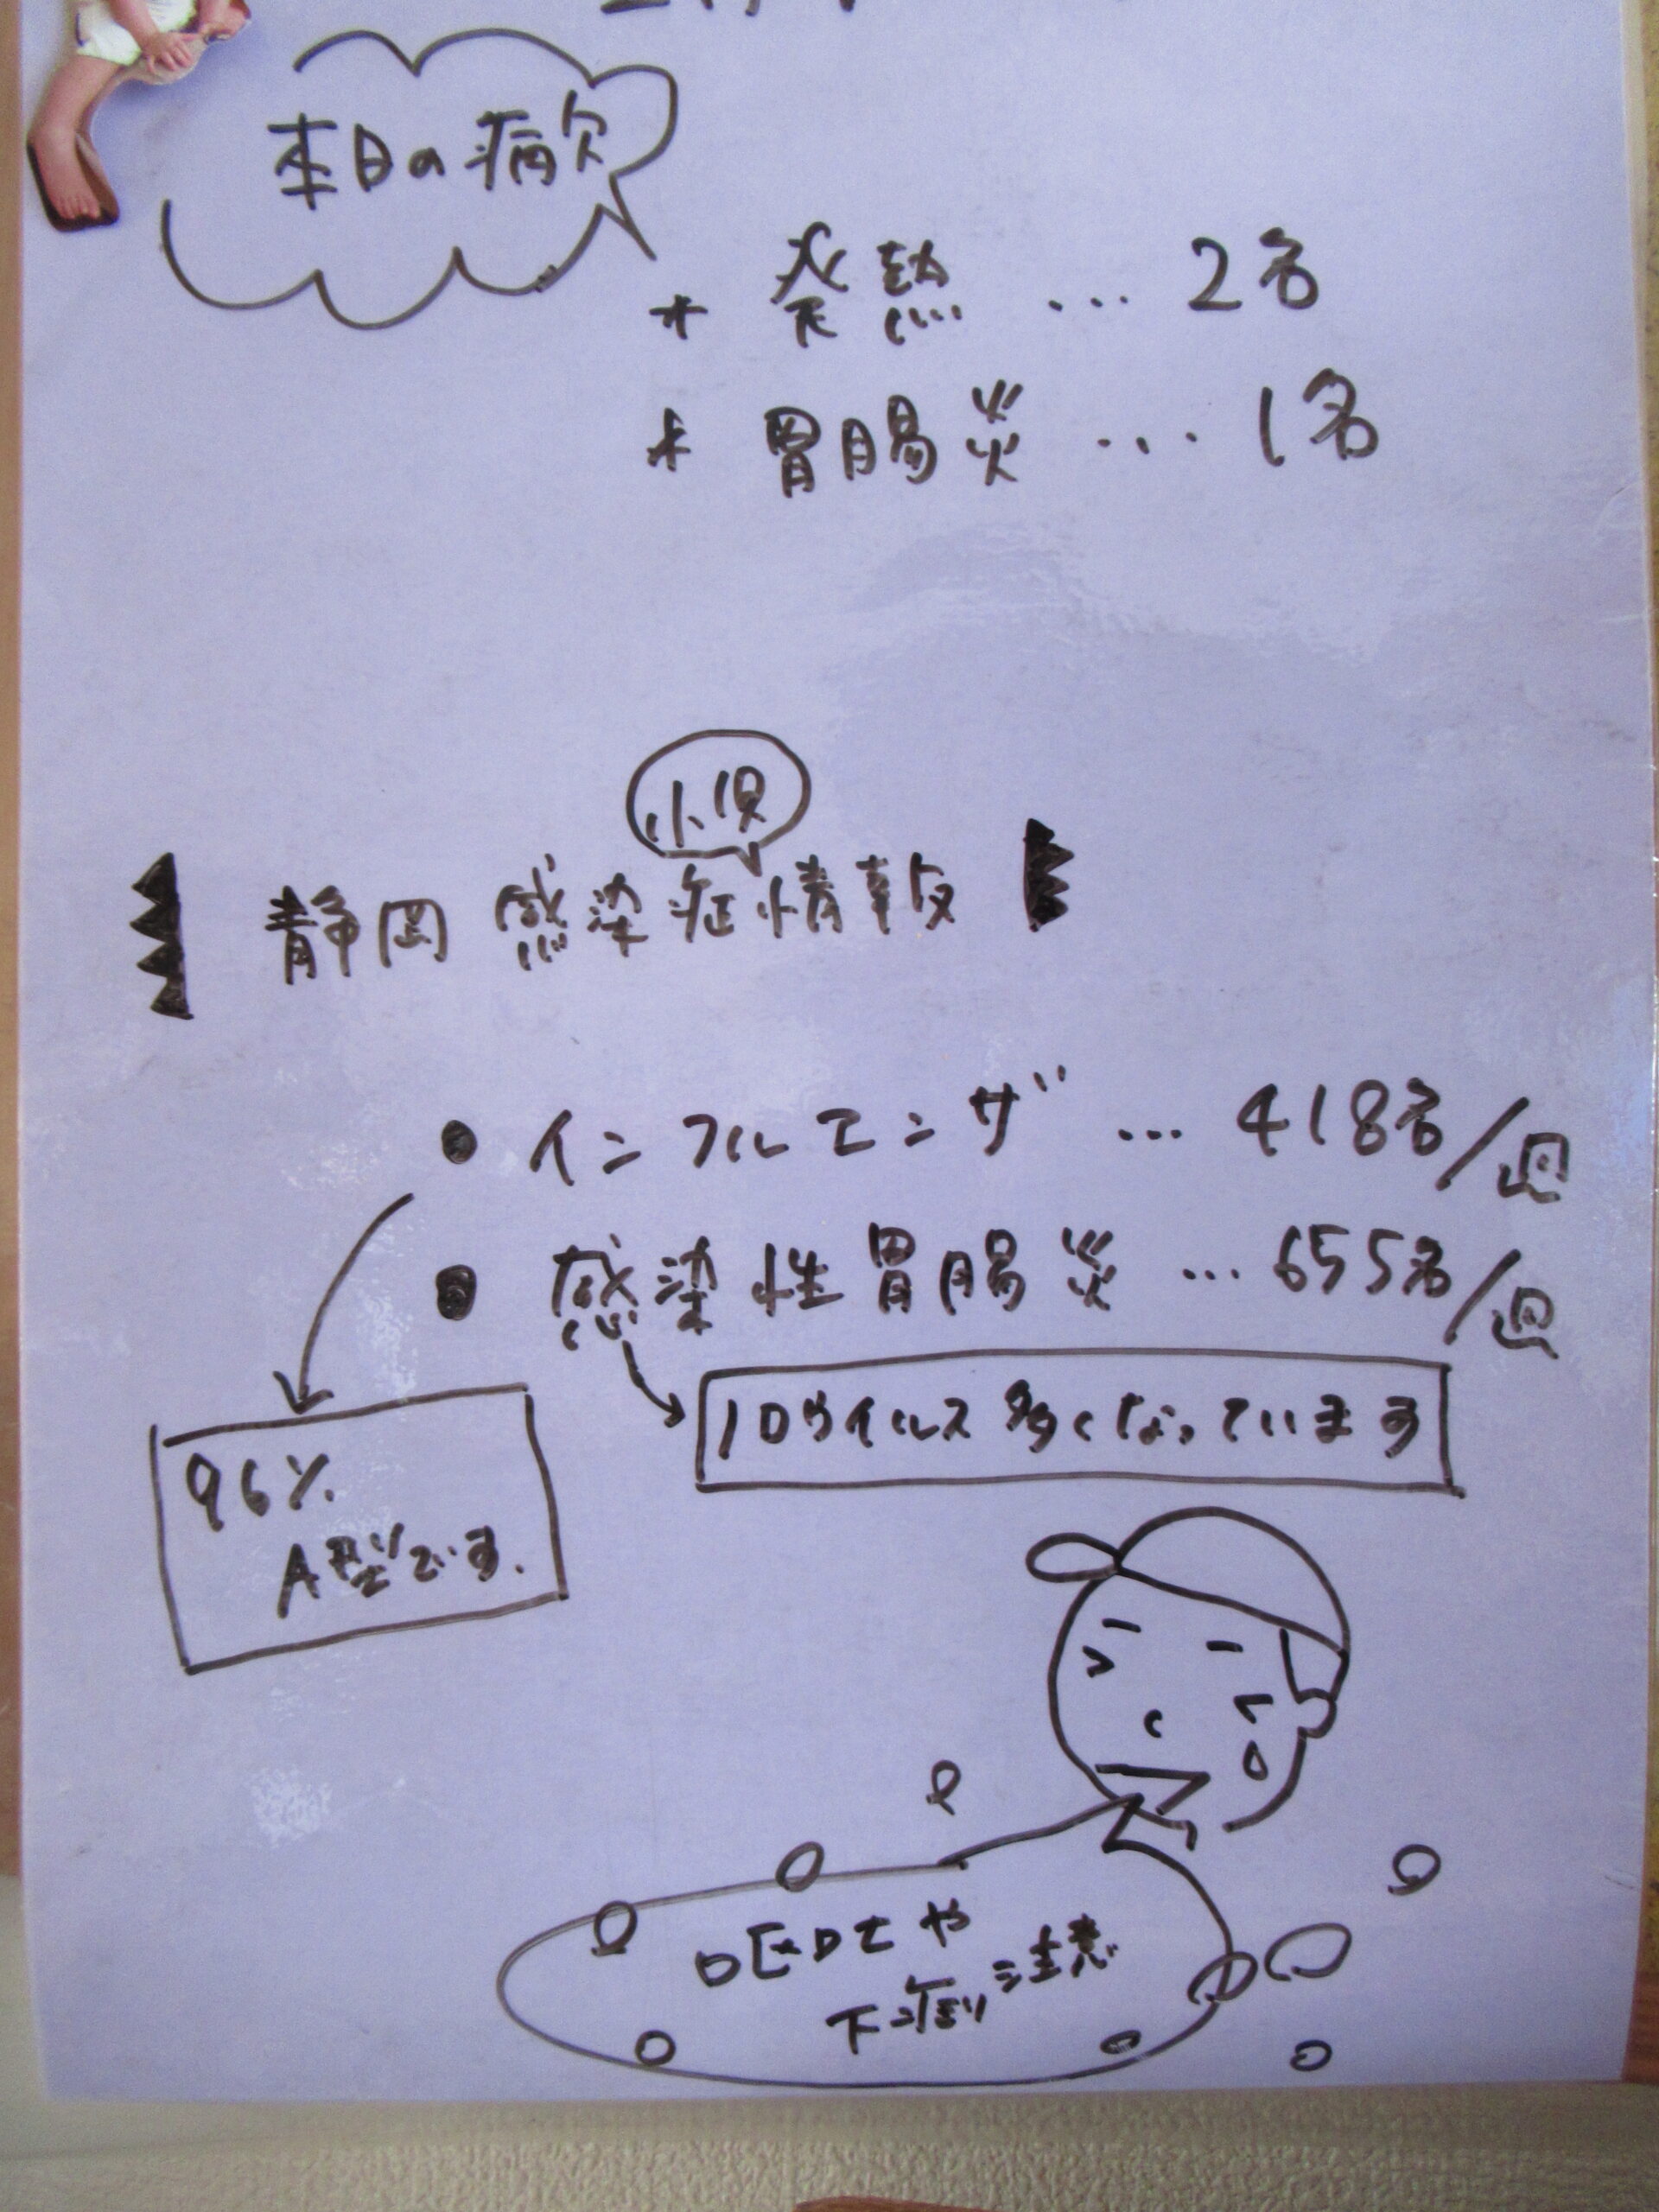 本日の病欠
＊ 発熱 … 2名
＊ 胃腸炎 … 1名
小児
静岡 感染症情報
● インフルエンザ … 418名/週
● 感染性胃腸炎 … 655名/週
ロウイルス多くなっています
96%
A型です.
嘔吐や
下痢注意